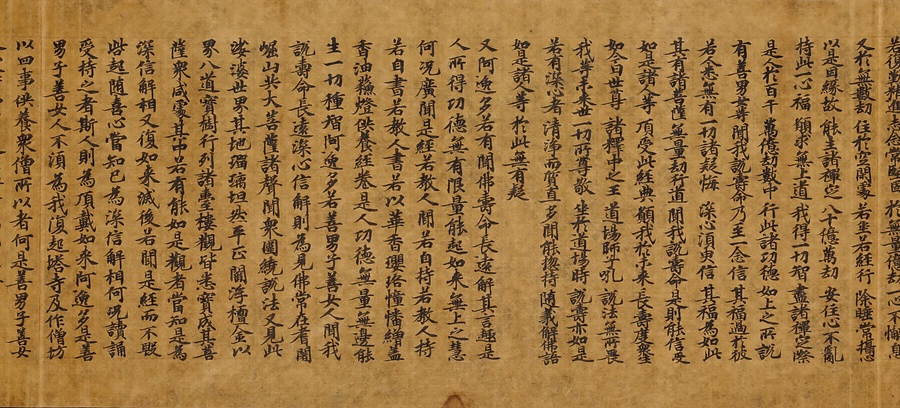 若復勤精進 志念常堅固 於無量億劫 一心不懈息
又於無數劫 住於空閑處 若坐若經行 除睡常攝心
以是因緣故 能生諸禪定 八十億萬劫 安住心不亂
持此一心福 願求無上道 我得一切智 盡諸禪定之際
是人於百千 萬億劫數中 行此諸功德 如上之所說
有善男女等 聞我說壽命 乃至一念信 其福過於彼
若人悉無有 一切諸疑悔 深心須臾信 其福為如此
其有諸菩薩 無量劫行道 聞我說壽命 是則能信受
如是諸人等 頂受此經典 願我於未來 長壽度眾生
如今日世尊 諸釋中之王 道場師子吼 說法無所畏
我等未來世 一切所尊敬 坐於道場時 說壽亦如是
若有深心者 清淨而質直 多聞能總持 隨義解佛語
如是諸人等 於此無有疑
又阿逸多若有聞佛壽命長遠解其言趣是
人所得功德無有限量能起如來無上之慧
何況廣聞是經若教人聞若自持若教人持
若自書若教人書若以華香瓔珞幢幡繒蓋
香油蘇燈供養經卷是人功德無量無邊能
生一切種智阿逸多若善男子善女人聞我
說壽命長遠深心信解則為見佛常在耆闍
崛山共大菩薩諸聲聞眾圍繞說法又見此
娑婆世界其地琉璃坦然平正閻浮檀金以
界八道寶樹行列諸臺樓觀皆悉寶成其菩
薩眾咸處其中若有能如是觀者當知是為
深信解相又復如來滅後若聞是經而不毀
呰起隨喜心當知已為深信解相何況讀誦
受持之者斯人則為頂戴如來阿逸多是善
男子善女人不須為我復起塔寺及作僧坊
以四事供養眾僧所以者何是善男子善女